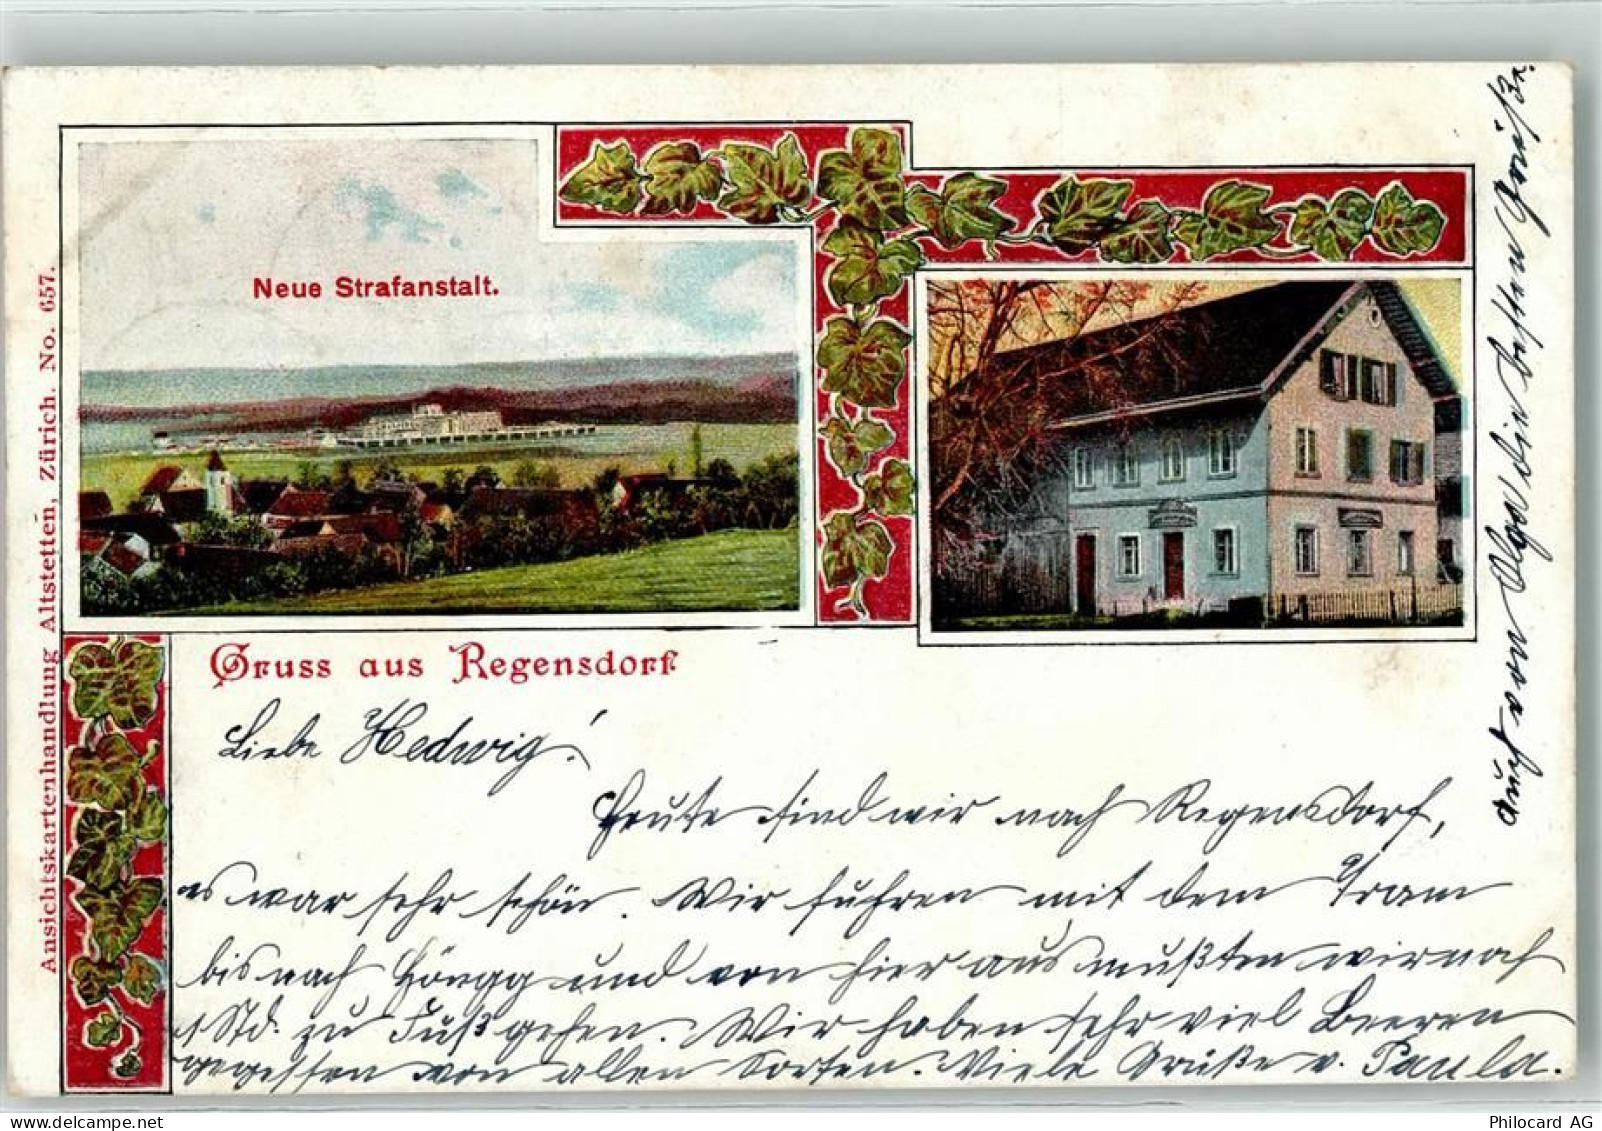 Neue Strafanstalt.
Gruss aus Regensdorf
Ansichtskartenhandlung Altstetten, Zürich. No. 657.
Liebe Hedwig!
Heute sind wir nach Regensdorf,
es war sehr schön. Wir fuhren mit dem Tram
bis nach Höngg und von hier aus mußten wir noch
1 Std. zu Fuß gehen. Wir haben sehr viel Beeren
gegessen von allen Sorten. Viele Grüße v. Paula.
auch von die besten Grüße.
Philocard AG